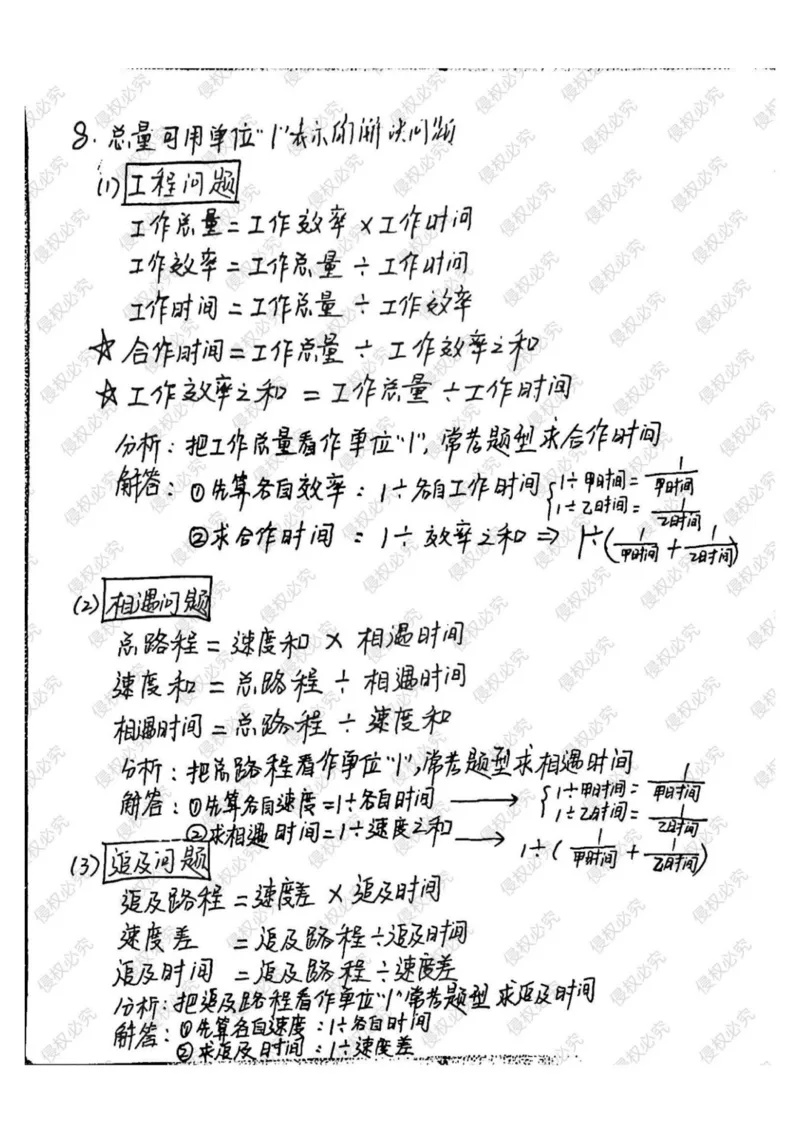 8. 总量可用单位"1"表示的解决问题
(1) 工程问题
工作总量=工作效率×工作时间
工作效率=工作总量÷工作时间
工作时间=工作总量÷工作效率
☆合作时间=工作总量÷工作效率之和
☆工作效率之和=工作总量÷工作时间
分析：把工作总量看作单位"1"，常考题型求合作时间
解答：①先算各自效率：1÷各自工作时间{1÷甲时间=1/甲时间
1÷乙时间=1/乙时间
②求合作时间：1÷效率之和⇒1÷(1/甲时间+1/乙时间)
(2) 相遇问题
总路程=速度和×相遇时间
速度和=总路程÷相遇时间
相遇时间=总路程÷速度和
分析：把总路程看作单位"1"，常考题型求相遇时间
解答：①先算各自速度=1÷各自时间→{1÷甲时间=1/甲时间
1÷乙时间=1/乙时间
②求相遇时间=1÷速度之和→1÷(1/甲时间+1/乙时间)
(3) 追及问题
追及路程=速度差×追及时间
速度差=追及路程÷追及时间
追及时间=追及路程÷速度差
分析：把追及路程看作单位"1"常考题型求追及时间
解答：①先算各自速度：1÷各自时间
②求追及时间：1÷速度差
侵权必究